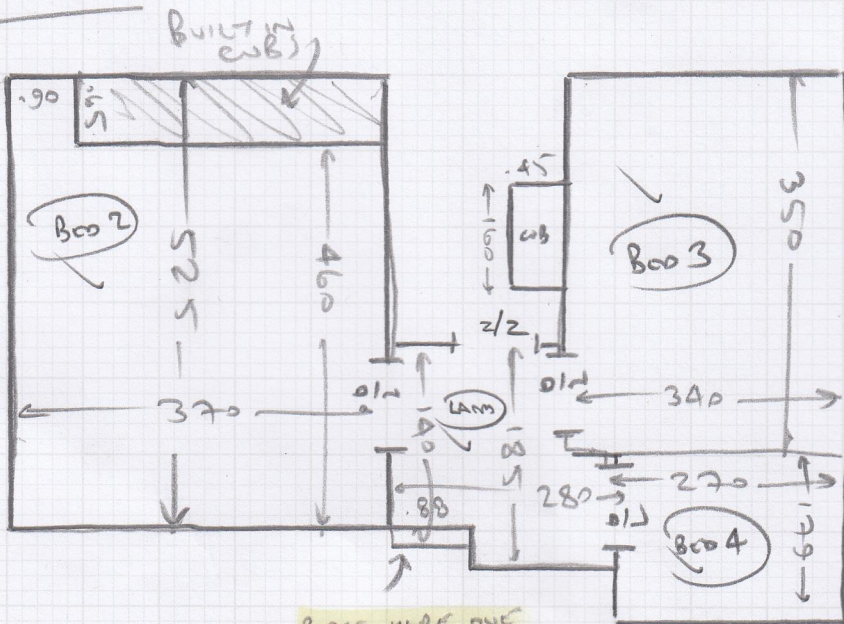 BUILT IN
CUB)
.90
.65
BED 2
525
460
370
.45
160
CUB
BED 3
350
2/2
D/2
140
LAND
185
D/2
340
.88
280
270
D/2
BED 4
179